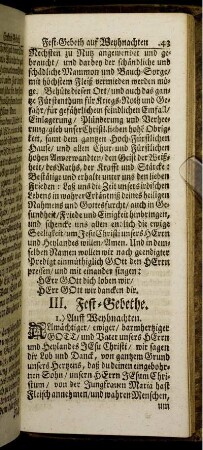 Fest-Gebeth auf Weyhnachten 43
Nechsten zu Nutz angewendet und ge-
braucht/ und darbey der schändliche und
schädliche Mammon und Bauch-Sorge/
mit höchstem Fleiß vermieden werden mö-
ge. Behüte diesen Ort/ und auch das gan-
tze Fürstenthum für Kriegs-Noth und Ge-
fahr/ für gefährlichem feindlichen Einfall/
Einlagerung/ Plünderung und Verhee-
rung/ gieb unser Christlichen hohe Obrig-
keit/ sam dem gantzen Hoch-Fürstlichen
Hause/ und allen Chur- und Fürstlichen
hohen Anverwandten/ den Geist der Weiß-
heit/ des Raths/ der Krafft und Stärcke:
Bestätige und erhalte unter uns den lieben
Frieden: Laß uns die Zeit unsers irdischen
Lebens in wahrer Erkäntniß deines heiligen
Nahmens und Gottesfurcht/ auch in Ge-
sundheit/ Friede und Einigkeit hinbringen/
und schencke uns allen endlich die ewige
Seligkeit/ um JEsu Christi unsers HErrn
und Heylandes willen/ Amen. Und in dem-
selben Namen wollen wir nach geendigter
Predigt einmüthiglich GOtt den HErrn
preisen/ und mit einander singen:
HErr GOtt dich loben wir/
HErr GOtt wir dancken dir.
III. Fest-Gebethe.
1.) Auff Weyhnachten.
Allmächtiger/ ewiger/ barmhertziger
GOTT/ und Vater unsers HErrn
und Heylandes JEsu Christi/ wir sagen
dir Lob und Danck/ von gantzem Grund
unsers Hertzens/ daß du deinen eingebohr-
nen Sohn/ unsern HErrn JEsum Chri-
stum/ von der Jungfrauen Maria hast
Fleisch annehmen/ und wahren Menschen/
um